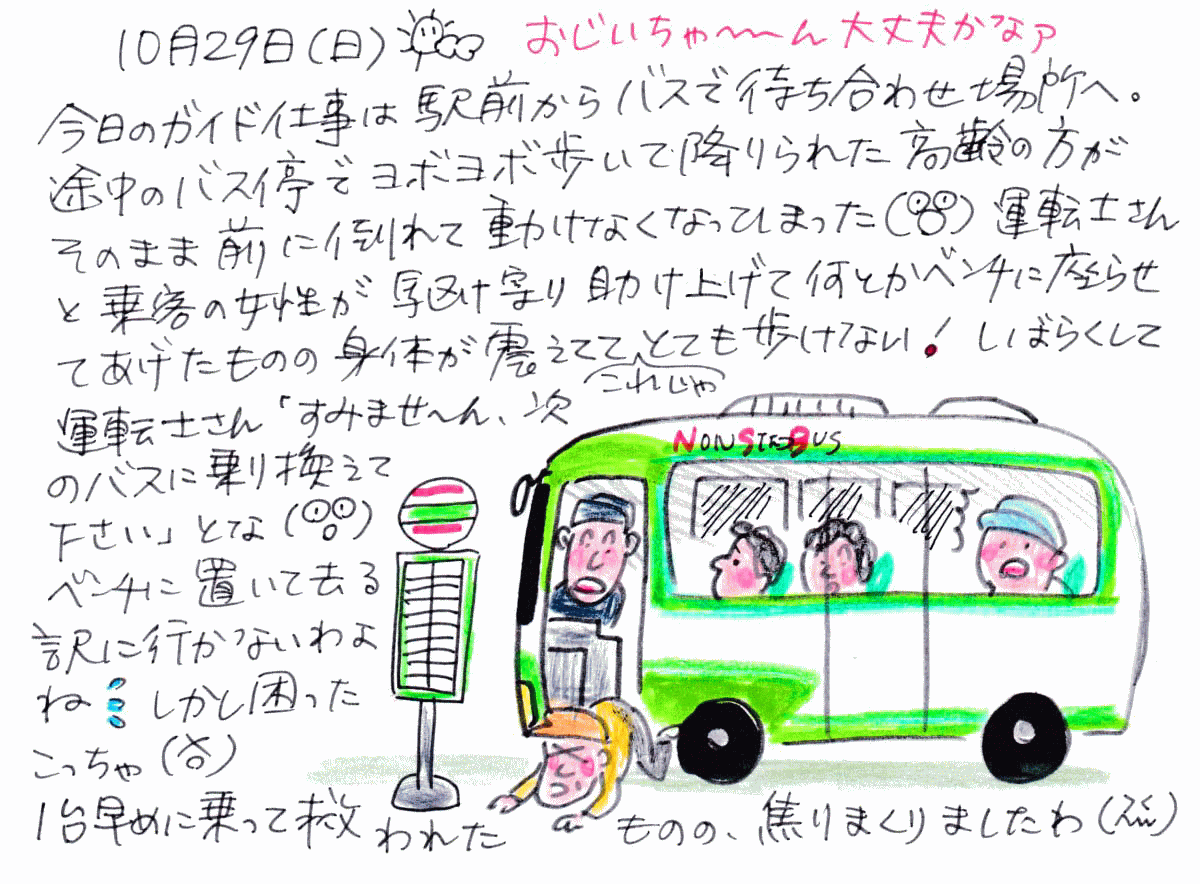 10月29日(日)
おじいちゃ〜〜ん大丈夫かなァ
今日のガイド仕事は駅前からバスで待ち合わせ場所へ。
途中のバス停でヨボヨボ歩いて降りられた高齢の方が
そのまま前に倒れて動けなくなってしまった( )運転士さん
と乗客の女性が駆け寄り助け上げて何とかベンチに座らせ
てあげたものの身体が震えてて、とても歩けない!しばらくして
これじゃ
運転士さん「すみませ〜ん、次
のバスに乗り換えて
下さい」とな( )
ベンチに置いて去る
訳に行かないわよ
ね しかし困った
こっちゃ( )
1台早めに乗って救われた ものの、焦りまくりましたわ( )
NONSTEPBUS